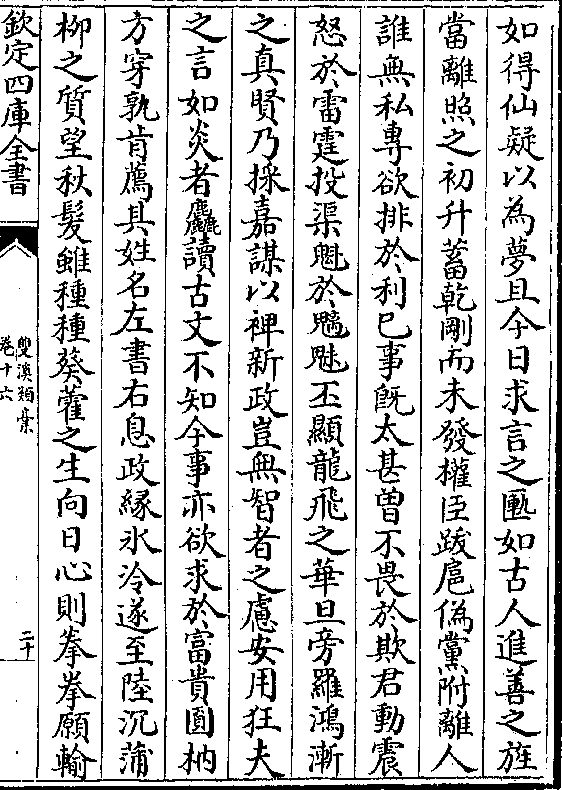 如得仙疑以為夢且今日求言之匭如古人進善之旌
當離照之初升蓄乾剛而未發權臣跋扈偽黨附離人
誰無私專欲排於利已事旣太甚曾不畏於欺君動震
怒於雷霆投渠魁於魑魅丕顯龍飛之華旦旁羅鴻漸
之真賢乃採嘉謀以裨新政豈無智者之慮安用狂夫
之言如炎者麤讀古文不知今事亦欲求於富貴圓枘
方穿孰肯薦其姓名左書右息政緣氷冷遂至陸沉蒲
柳之質望秋髮雖種種葵藿之生向日心則拳拳願輸
欽定四庫全書
雙溪類槀
卷十六
二十